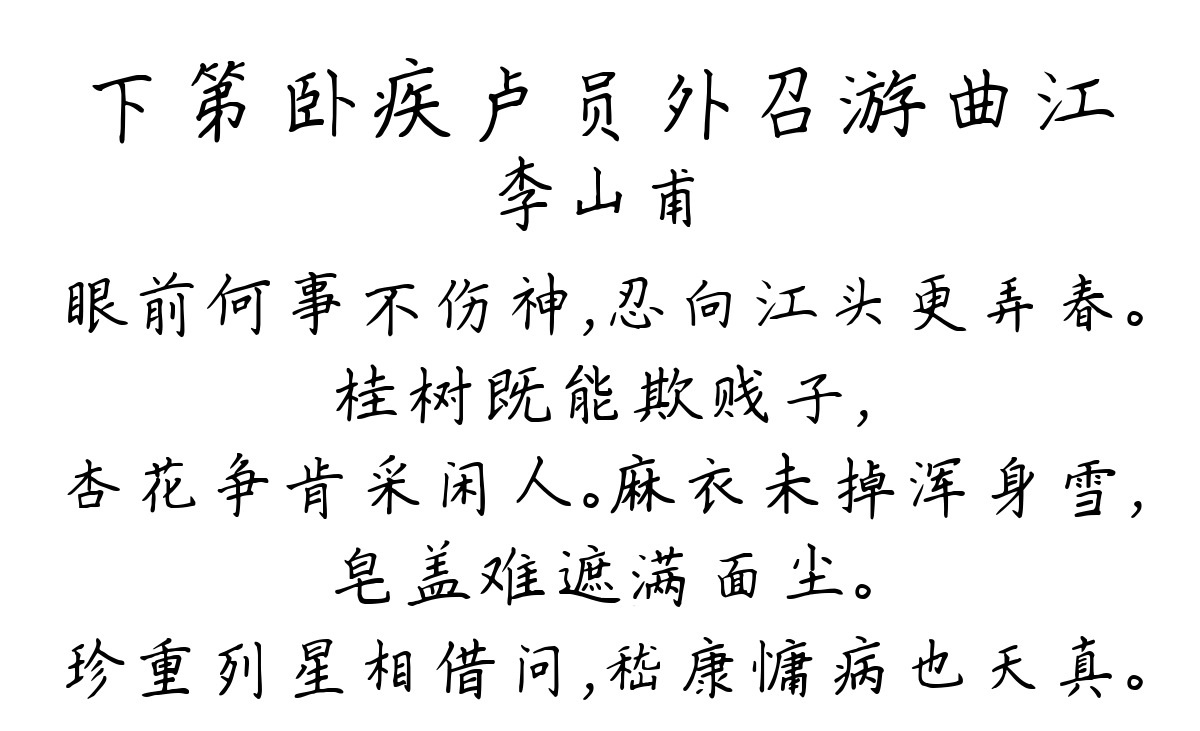 下第卧疾卢员外召游曲江
李山甫
眼前何事不伤神,忍向江头更弄春。
桂树既能欺贱子,
杏花争肯采闲人。麻衣未掉浑身雪,
皂盖难遮满面尘。
珍重列星相借问,嵇康慵病也天真。